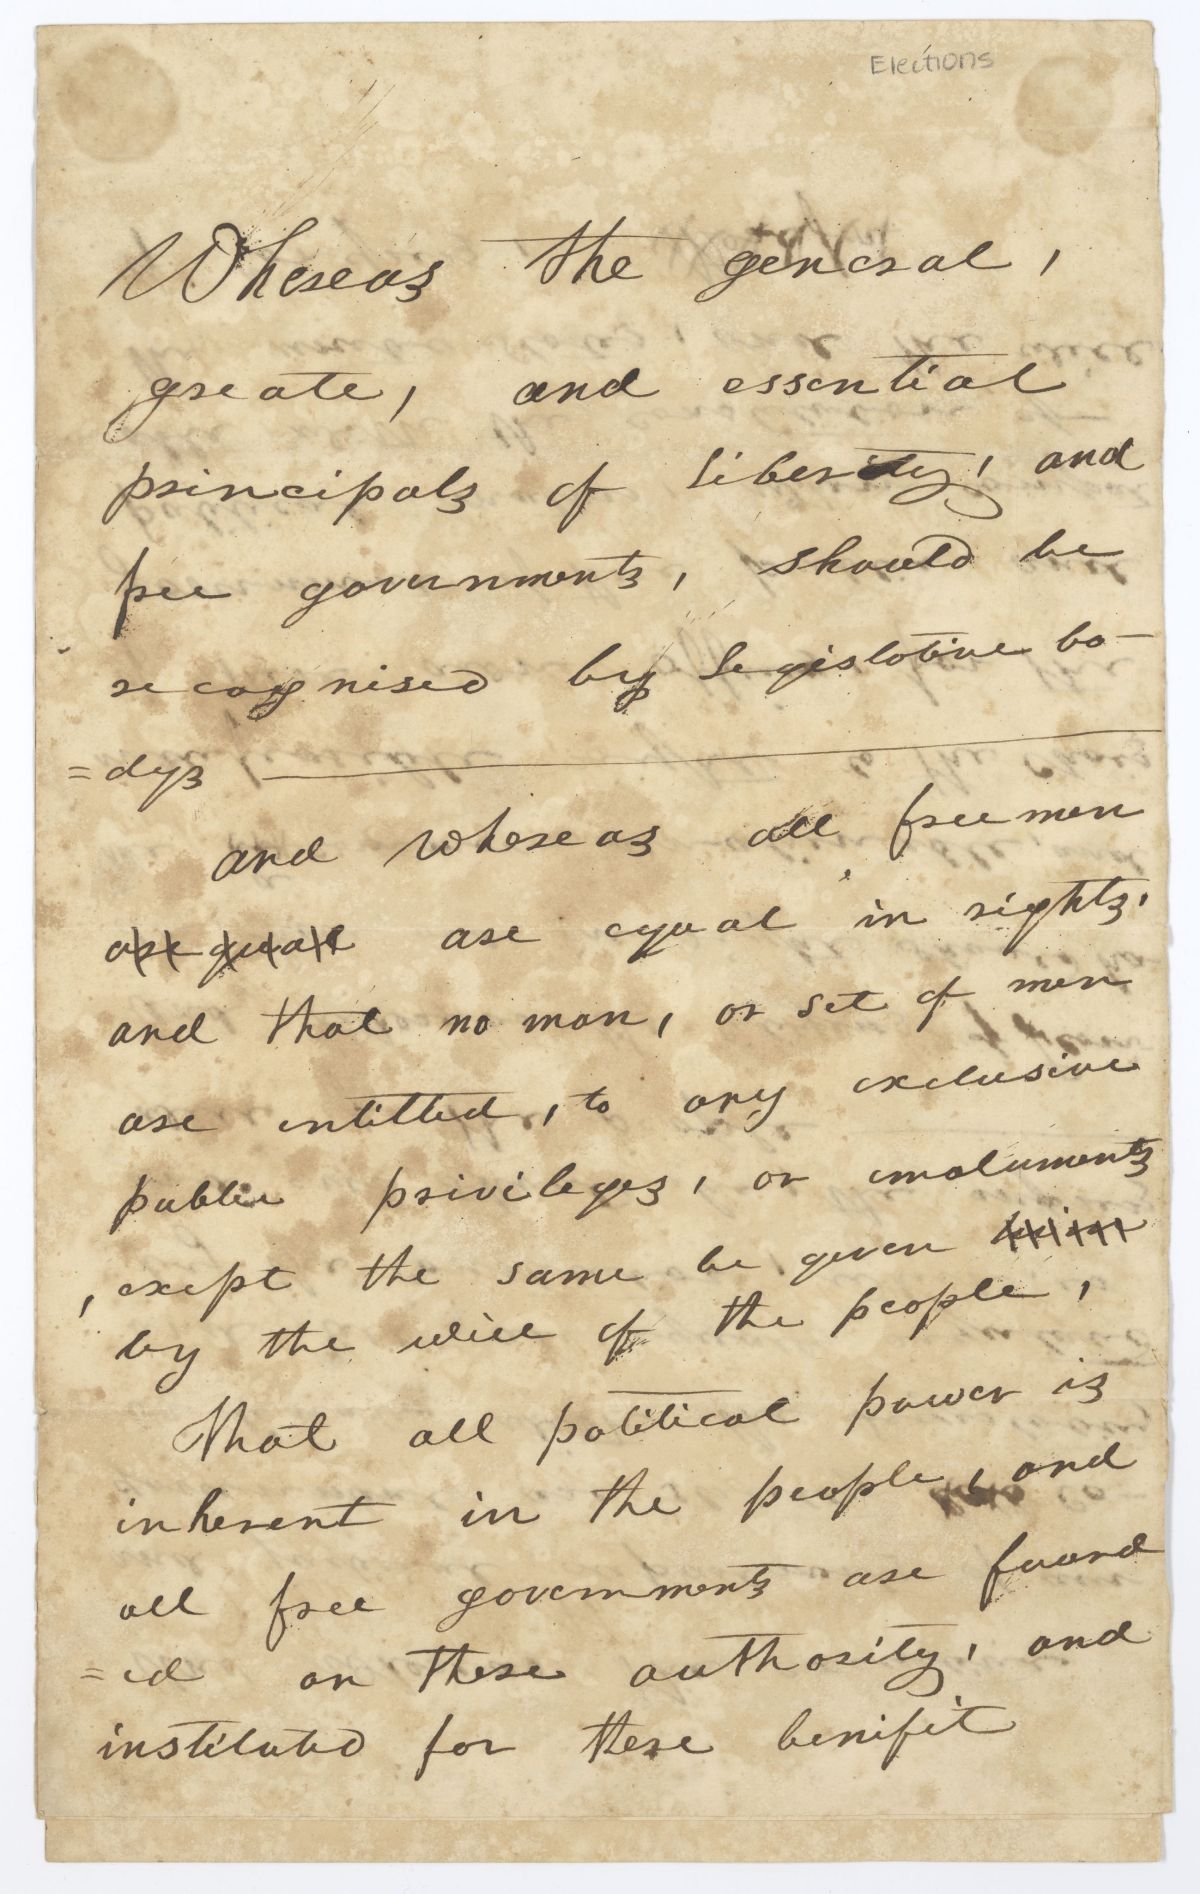 Elections
Whereas the general,
greate, and essential
principals of liberty, and
free governments, should be
recognised by legislative bo-
=dys
and whereas all freemen
are equal are equal in rights,
and that no man, or set of men
are entitled, to any exclusive
public privileges, or emoluments
, exept the same be given
by the will of the people,
That all political power is
inherent in the people, and
all free governments are found
=ed on there authority, and
instituted for there benifit